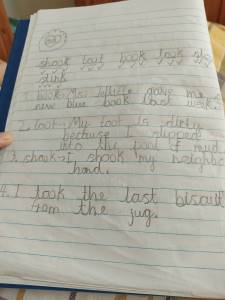 shook foot book look
stink
1. book- Mr. gave me a
new blue book last week.
2. foot- My foot is dirty
because I slipped
into the pool of mud
3. shook- I shook my neighbo
hand.
4. I took the last biscuit
from the jug.